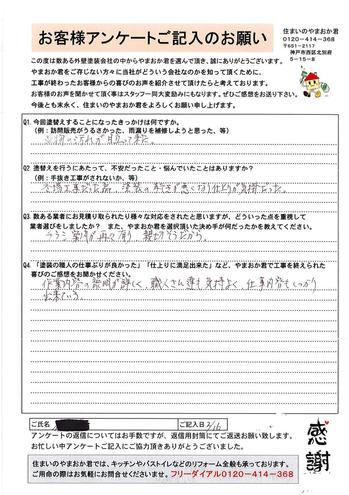 お客様アンケートご記入のお願い
住まいのやまおか君
0120-414-368
〒651-2117
神戸市西区北別府
5-15-8
この度は数ある外壁塗装会社の中からやまおか君を選んで頂き、誠にありがとうございます。
やまおか君をご存じない方々に当社がどういう会社なのかを知って頂くために、
工事が終わったお客様からの喜びのお声を紹介させて頂けたらと考えております。
お客様のお声を聞かせて頂く事はスタッフ一同大変励みにもなります。ぜひご感想をお送り下さい。
今後とも末永く、住まいのやまおか君をよろしくお願い申し上げます。
Q1. 今回塗替えすることになったきっかけは何ですか。
(例：訪問販売がうるさかった、雨漏りを補修しようと思った、等)
汚れが目立って来た。
Q2. 塗替えを行うにあたって、不安だったこと・悩んでいたことはありますか？
(例：手抜き工事がされないか、等)
冬場工事だった為、塗装の乾きが悪くなり仕上りが気掛だった。
Q3. 数ある業者にお見積り取られたり様々な対応をされたと思いますが、どういった点を重視して
業者選びをしましたか？ また、やまおか君を選択頂いた決め手が何だったかを教えてください。
チラシ 案内が再々有り、親切そうだから。
Q4. 「塗装の職人の仕事ぶりが良かった」「仕上りに満足出来た」など、やまおか君で工事を終えられた
喜びのご感想をお聞かせください。
作業内容の説明が詳しく、職人さん達も気持よく、仕事内容もしっかり
出来ている。
ご氏名
ご記入日 2/16
アンケートの返信についてはお手数ですが、返信用封筒にてご返送お願い致します。
お忙しい中アンケートにご協力頂きありがとうございました。
感謝
住まいのやまおか君では、キッチンやバストイレなどのリフォーム全般も承っております。
ご用命の際はお気軽にお問合せくださいませ。フリーダイアル0120-414-368